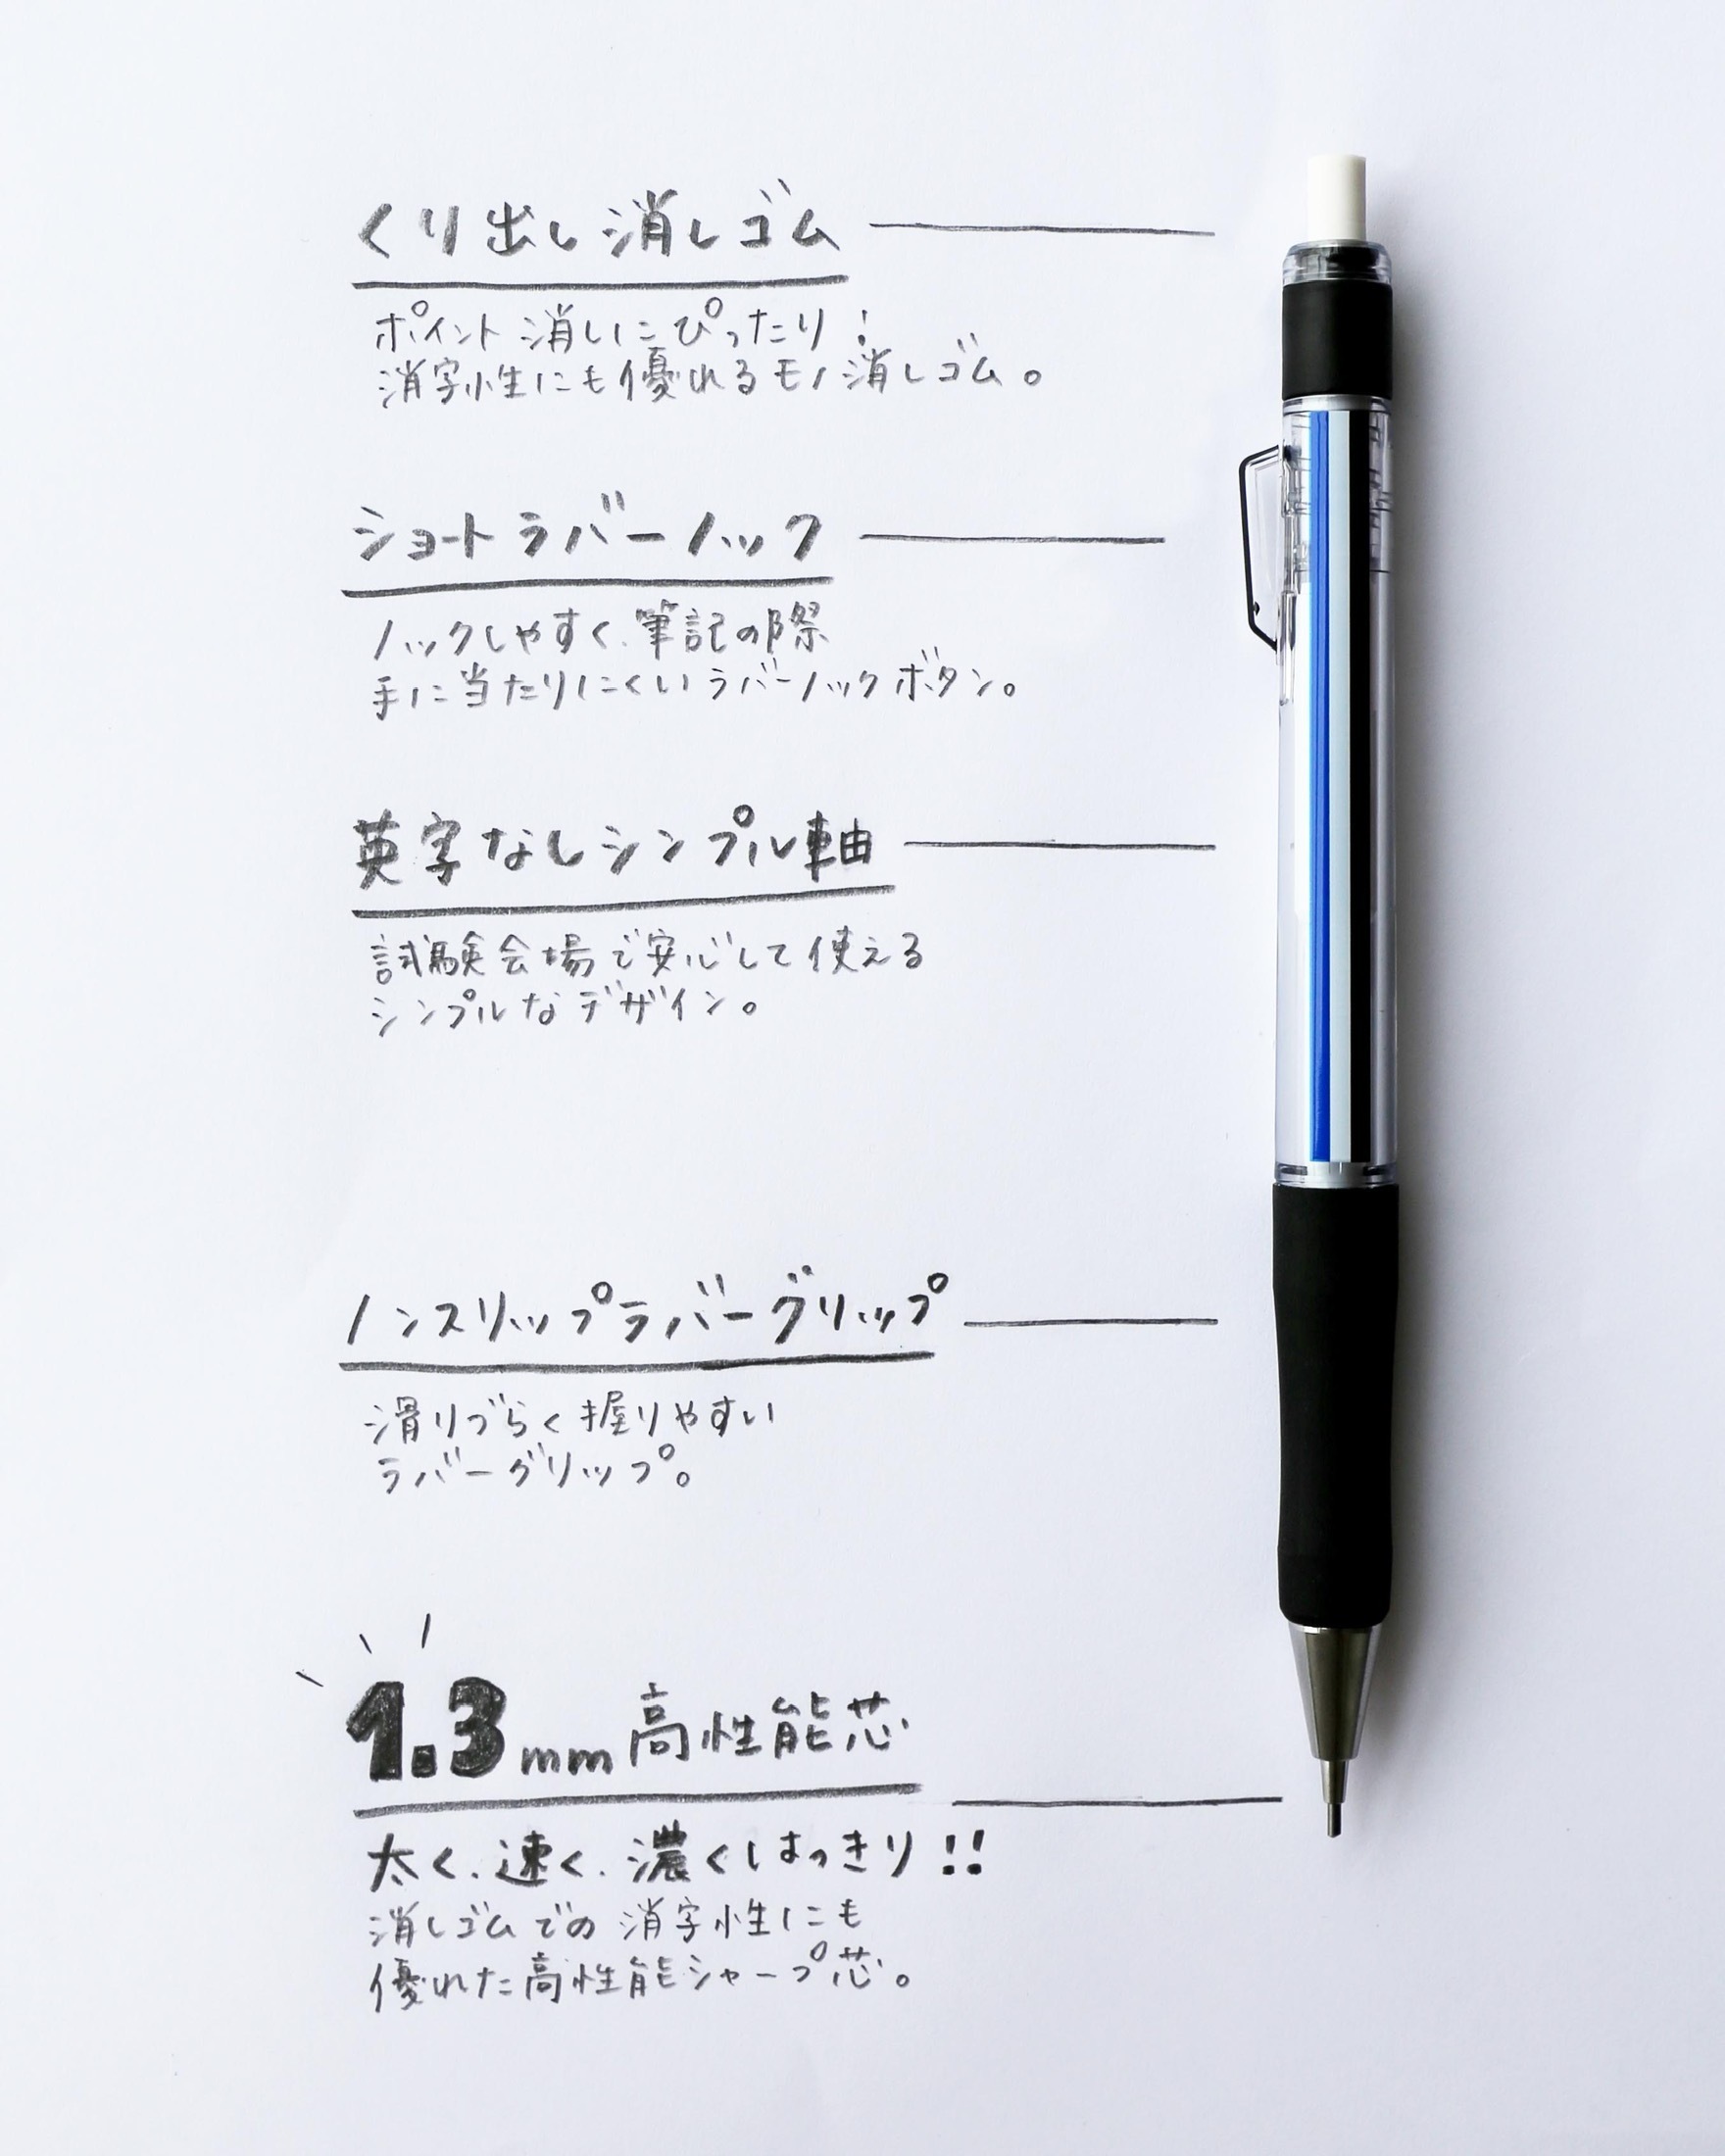 くり出し消しゴム
ポイント消しにぴったり！
消字性にも優れるモノ消しゴム。
ショートラバーノック
ノックしやすく、筆記の際
手に当たりにくいラバーノックボタン。
英字なしシンプル軸
試験会場で安心して使える
シンプルなデザイン。
ノンスリップラバーグリップ
滑りづらく握りやすい
ラバーグリップ。
1.3mm高性能芯
太く、速く、濃くはっきり!!
消しゴムでの消字性にも
優れた高性能シャープ芯。